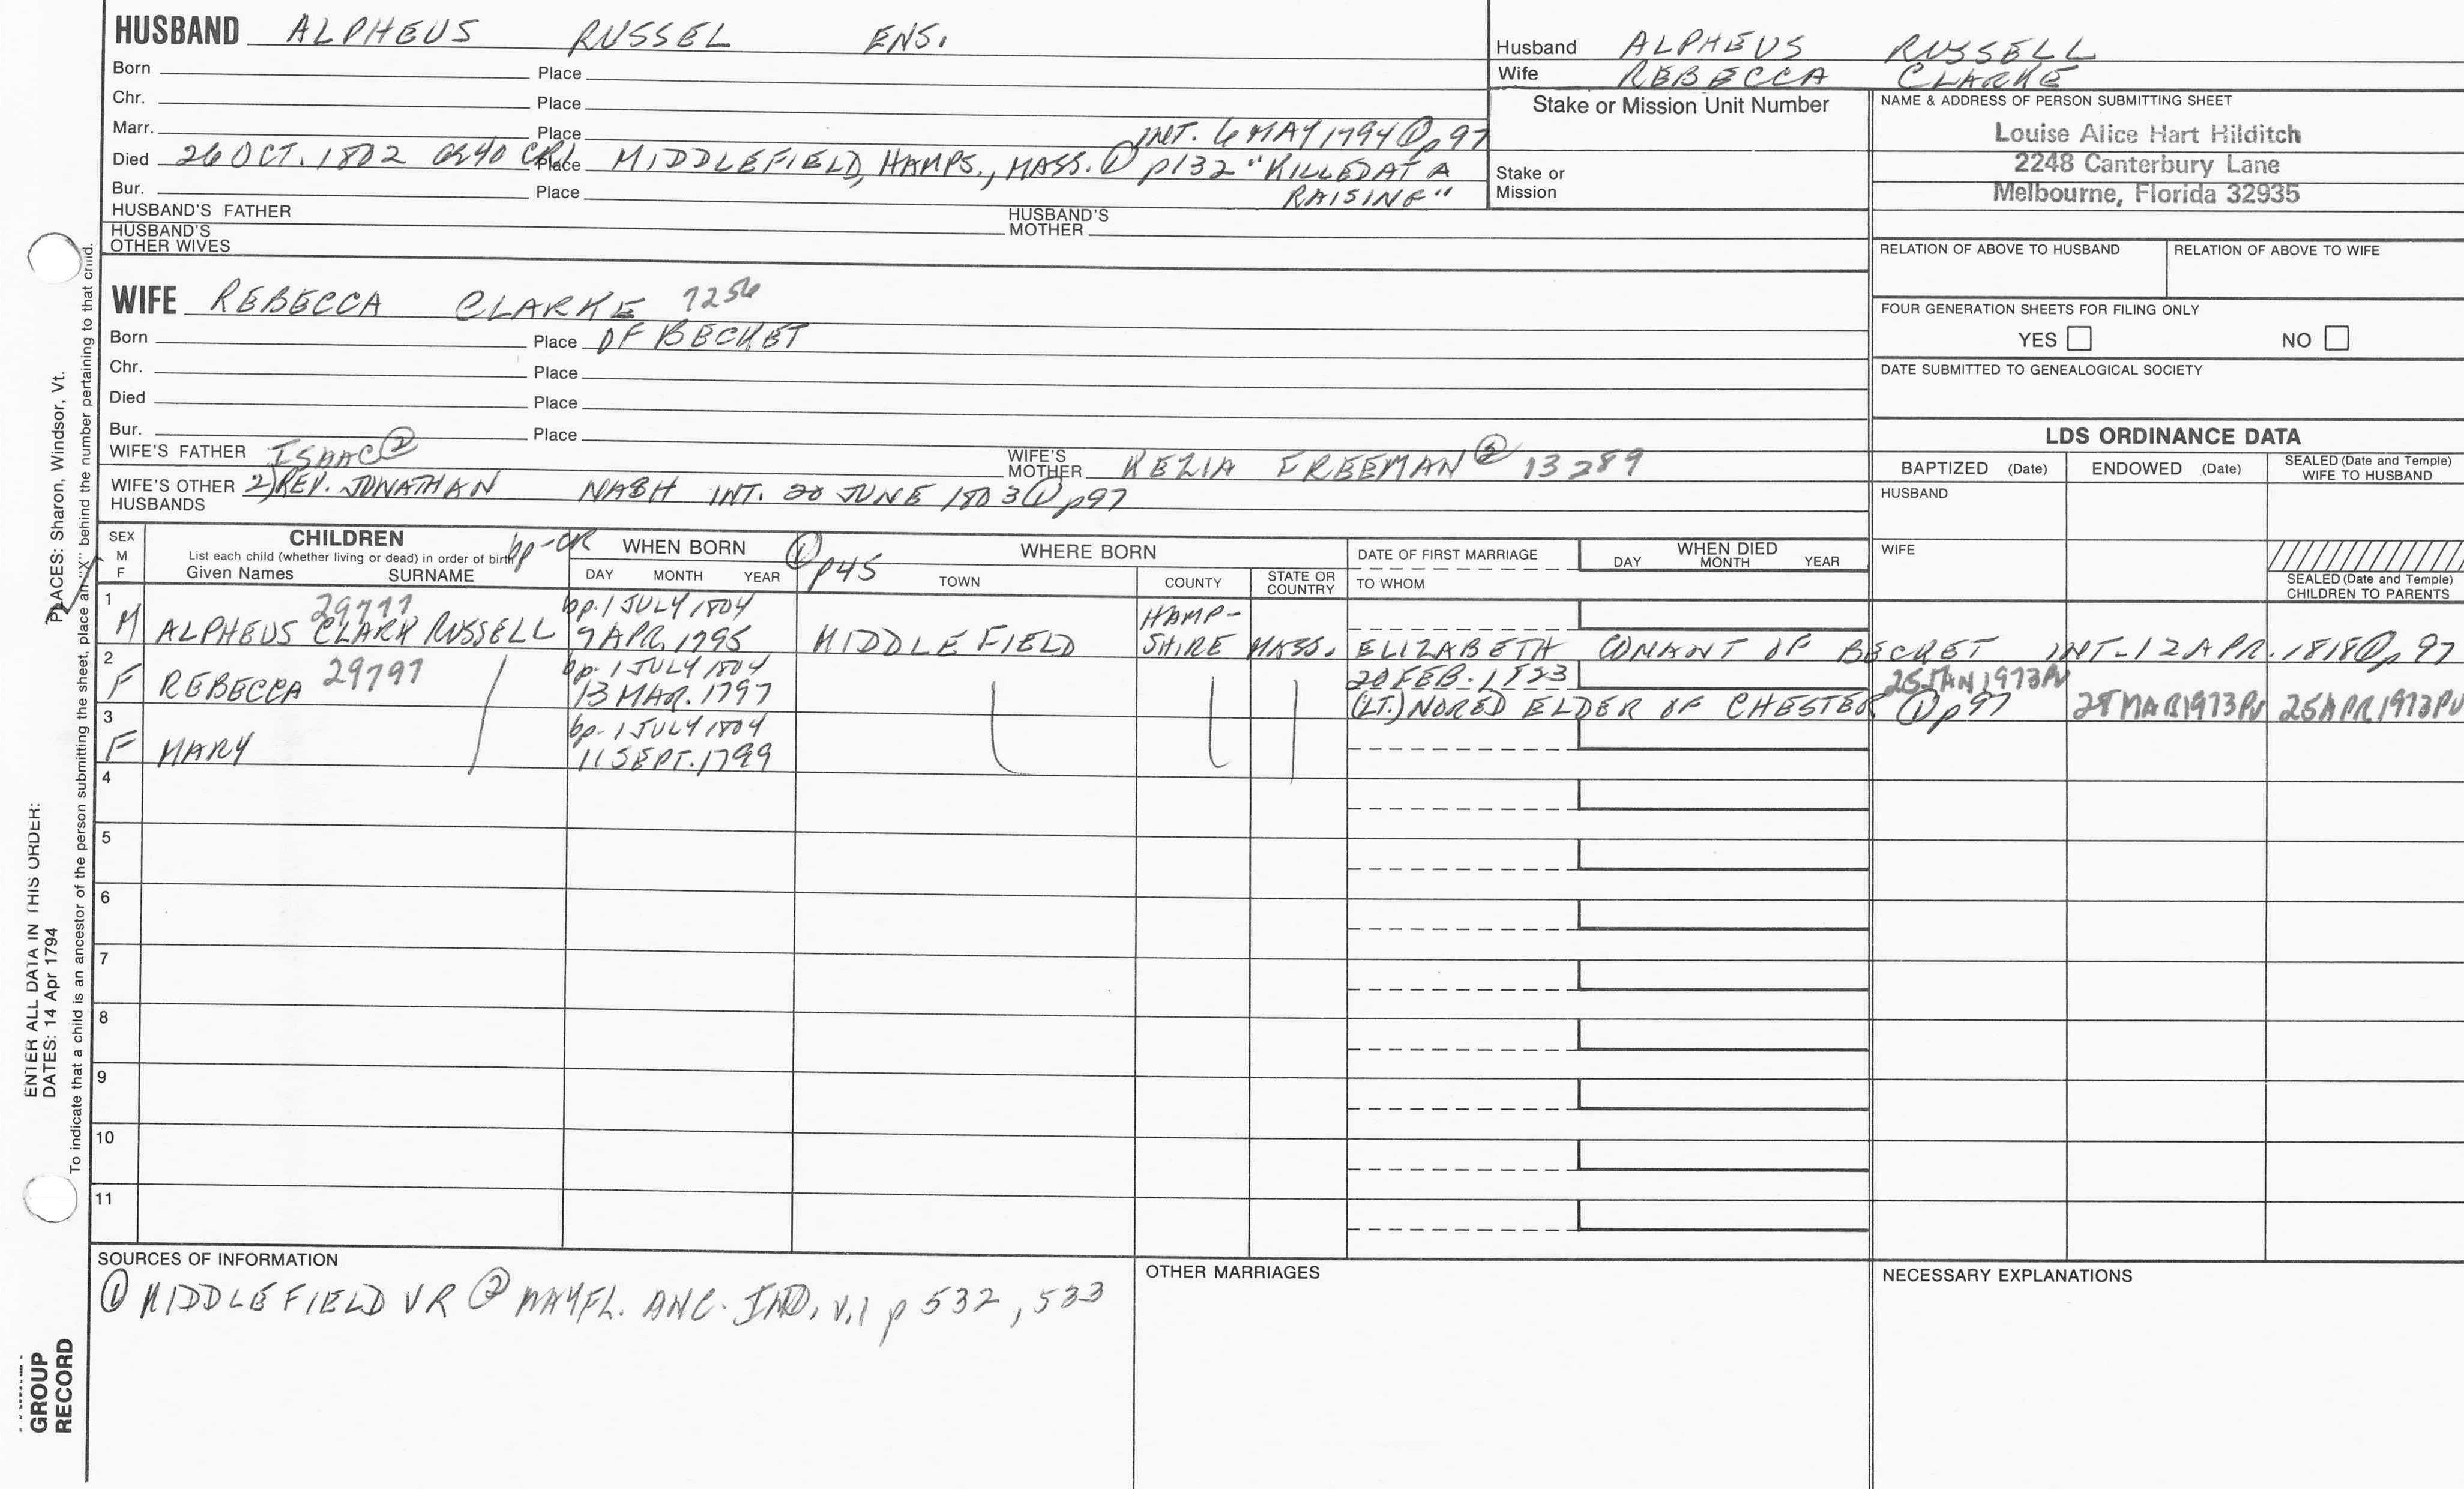 HUSBAND ALPHEUS RUSSEL ENS.
Born Place
Chr. Place
Marr. Place INT. 6 MAY 1794 ① p97
Died 26 OCT. 1802 AE 40 CR1 Place MIDDLEFIELD, HAMPS., MASS. ① p132 "KILLED AT A
RAISING"
Bur. Place
HUSBAND'S FATHER HUSBAND'S MOTHER
HUSBAND'S OTHER WIVES
Husband ALPHEUS RUSSELL
Wife REBECCA CLARKE
Stake or Mission Unit Number
Stake or Mission
NAME & ADDRESS OF PERSON SUBMITTING SHEET
Louise Alice Hart Hilditch
2248 Canterbury Lane
Melbourne, Florida 32935
RELATION OF ABOVE TO HUSBAND RELATION OF ABOVE TO WIFE
FOUR GENERATION SHEETS FOR FILING ONLY
YES NO
DATE SUBMITTED TO GENEALOGICAL SOCIETY
WIFE REBECCA CLARKE 7256
Born Place OF BECKET
Chr. Place
Died Place
Bur. Place
WIFE'S FATHER ISAAC ② WIFE'S MOTHER KEZIA FREEMAN ② 13289
WIFE'S OTHER HUSBANDS 2) REV. JONATHAN NASH INT. 20 JUNE 1803 ① p97
LDS ORDINANCE DATA
BAPTIZED (Date) ENDOWED (Date) SEALED (Date and Temple) WIFE TO HUSBAND
HUSBAND
WIFE
SEALED (Date and Temple) CHILDREN TO PARENTS
SEX M F
CHILDREN
List each child (whether living or dead) in order of birth
Given Names SURNAME
bp-CR
WHEN BORN
DAY MONTH YEAR
① p45
WHERE BORN
TOWN COUNTY STATE OR COUNTRY
DATE OF FIRST MARRIAGE
TO WHOM
WHEN DIED
DAY MONTH YEAR
1 29777 bp. 1 JULY 1804 HAMP-
M ALPHEUS CLARK RUSSELL 9 APR. 1795 MIDDLEFIELD SHIRE MASS. ELIZABETH CONANT OF BECKET INT. 12 APR. 1818 ① p 97
2 29797 bp. 1 JULY 1804 20 FEB. 1823 25 JAN 1973 PV
F REBECCA 13 MAR. 1797 (LT.) NORED ELDER OF CHESTER ① p97 28 MAR 1973 PV 25 APR 1973 PV
3 bp- 1 JULY 1804
F MARY 11 SEPT. 1799
4
5
6
7
8
9
10
11
SOURCES OF INFORMATION
① MIDDLEFIELD VR ② MAYFL. ANC. IND. v.1 p 532, 533
OTHER MARRIAGES
NECESSARY EXPLANATIONS
PLACES: Sharon, Windsor, Vt.
To indicate that a child is an ancestor of the person submitting the sheet, place an "X" behind the number pertaining to that child.
ENTER ALL DATA IN THIS ORDER:
DATES: 14 Apr 1794
GROUP
RECORD